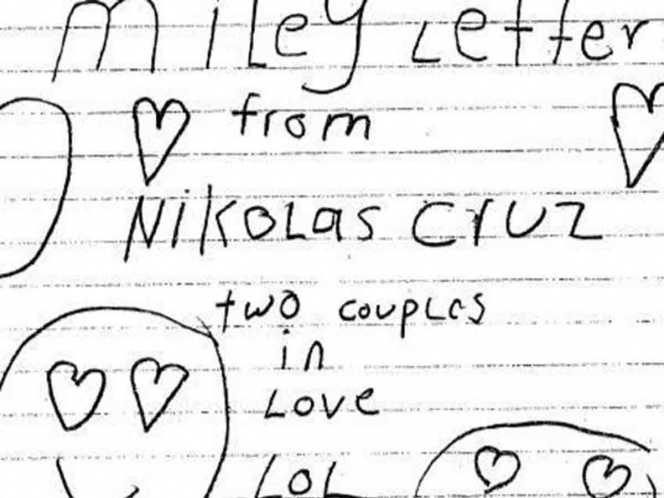 miley Letter
from
NikoLas Cruz
two couples
in
Love
LoL